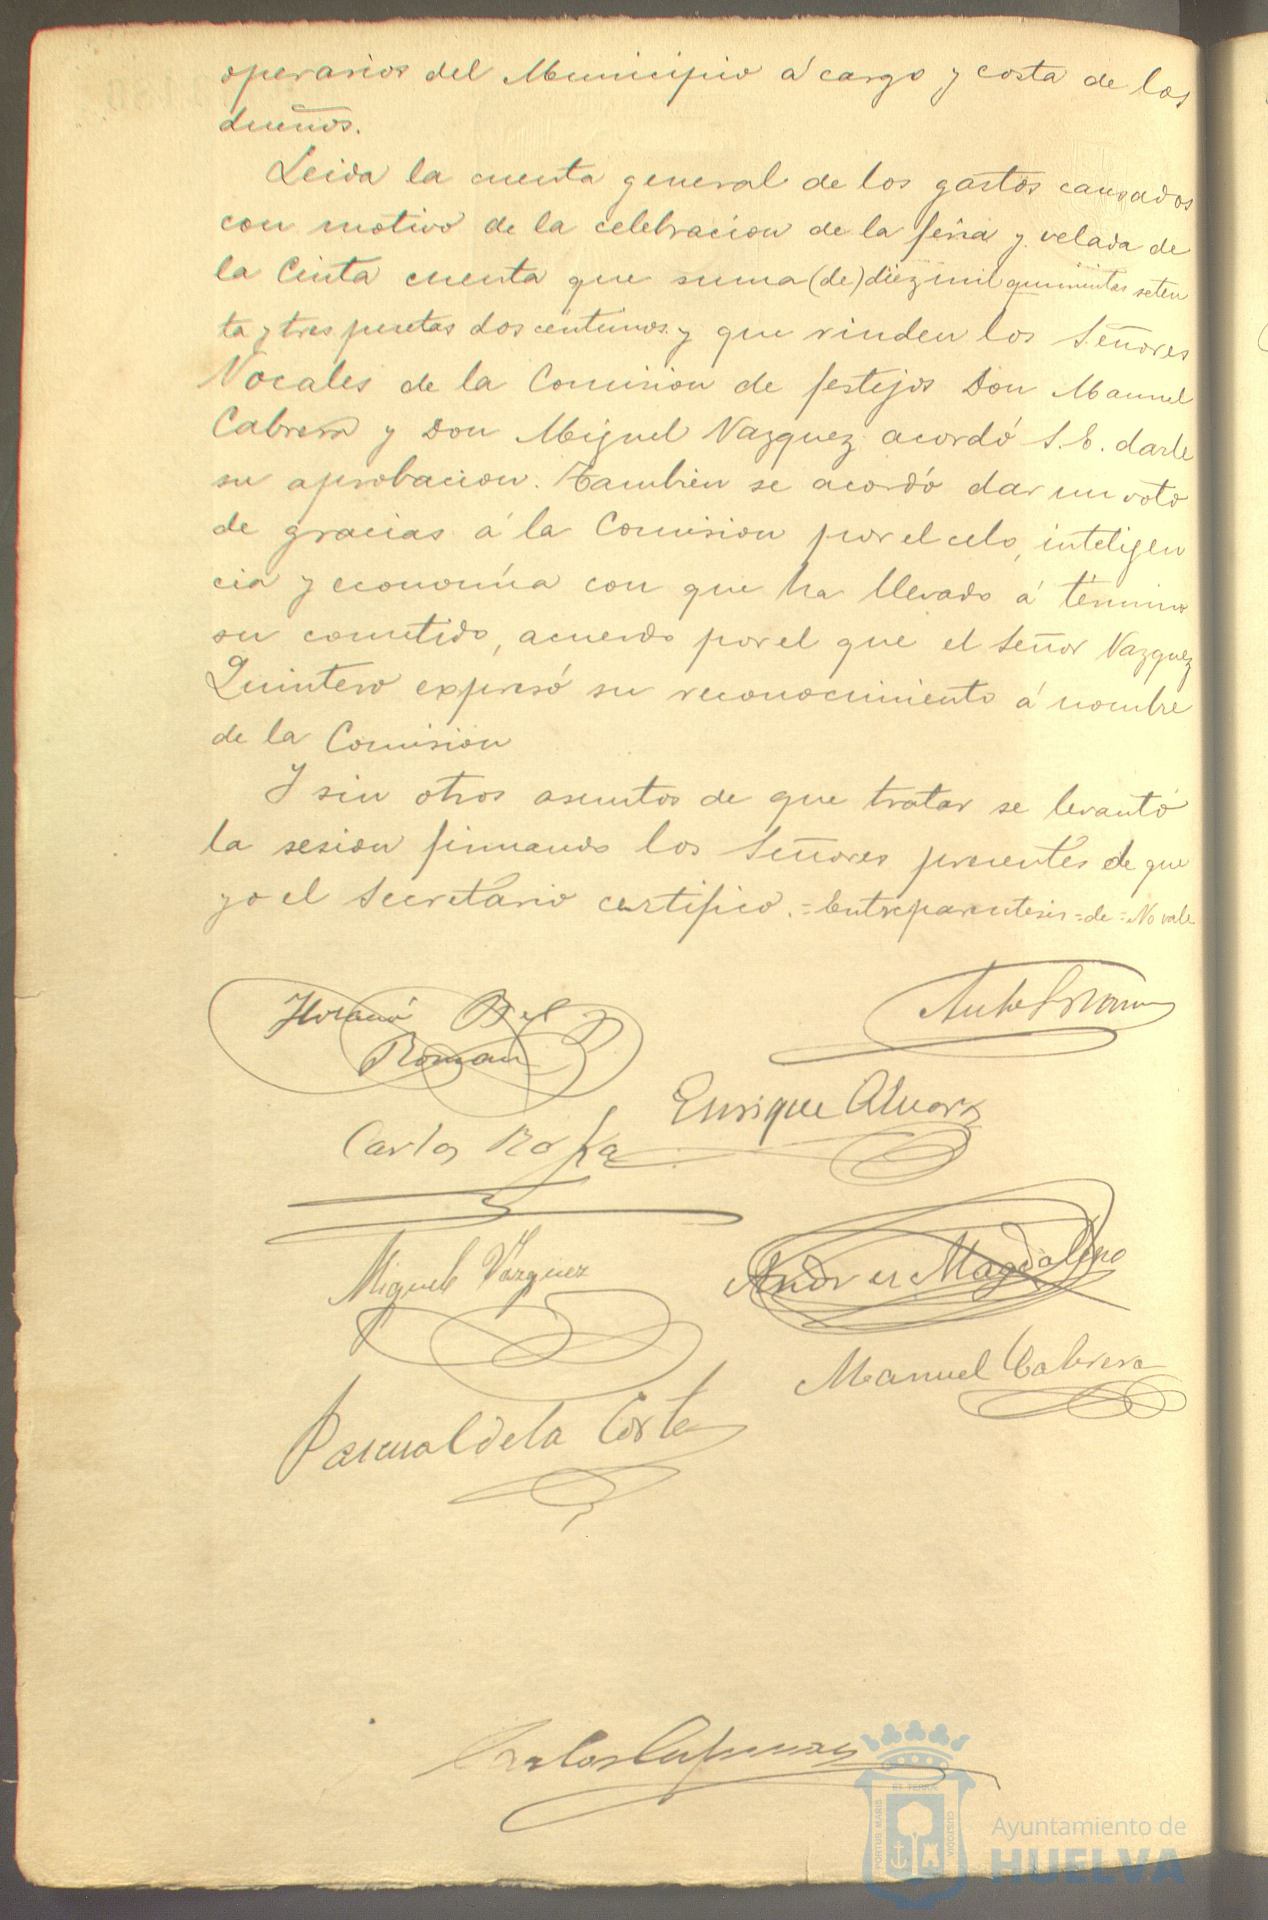 operarios del Municipio á cargo y costa de los
dueños.
Leida la cuenta general de los gastos causados
con motivo de la celebracion de la feria y velada de
la Cinta cuenta que suma (de) diez mil quinientas seten
ta y tres pesetas dos centimos y que rinden los Señores
Vocales de la Comision de festejos Don Manuel
Cabrera y Don Miguel Vazquez acordó S.E. darle
su aprobacion. Tambien se acordó dar un voto
de gracias á la Comision por el celo, inteligen
cia y economía con que ha llevado á término
su cometido, acuerdo por el que el Señor Vazquez
Quintero expresó su reconocimiento á nombre
de la Comision
Y sin otros asuntos de que tratar se levantó
la sesion firmando los Señores presentes de que
yo el Secretario certifico. = Entreparentesis = de = No vale
Horacio Bel
Roman
Enrique Alvarz
Carlos
Miguel Vazquez
Andres Magdaleno
Manuel Cabrera
Pascual de la Corte
Carlos
PORTUS MARIS ET TERRÆ CUSTODIA
Ayuntamiento de
HUELVA